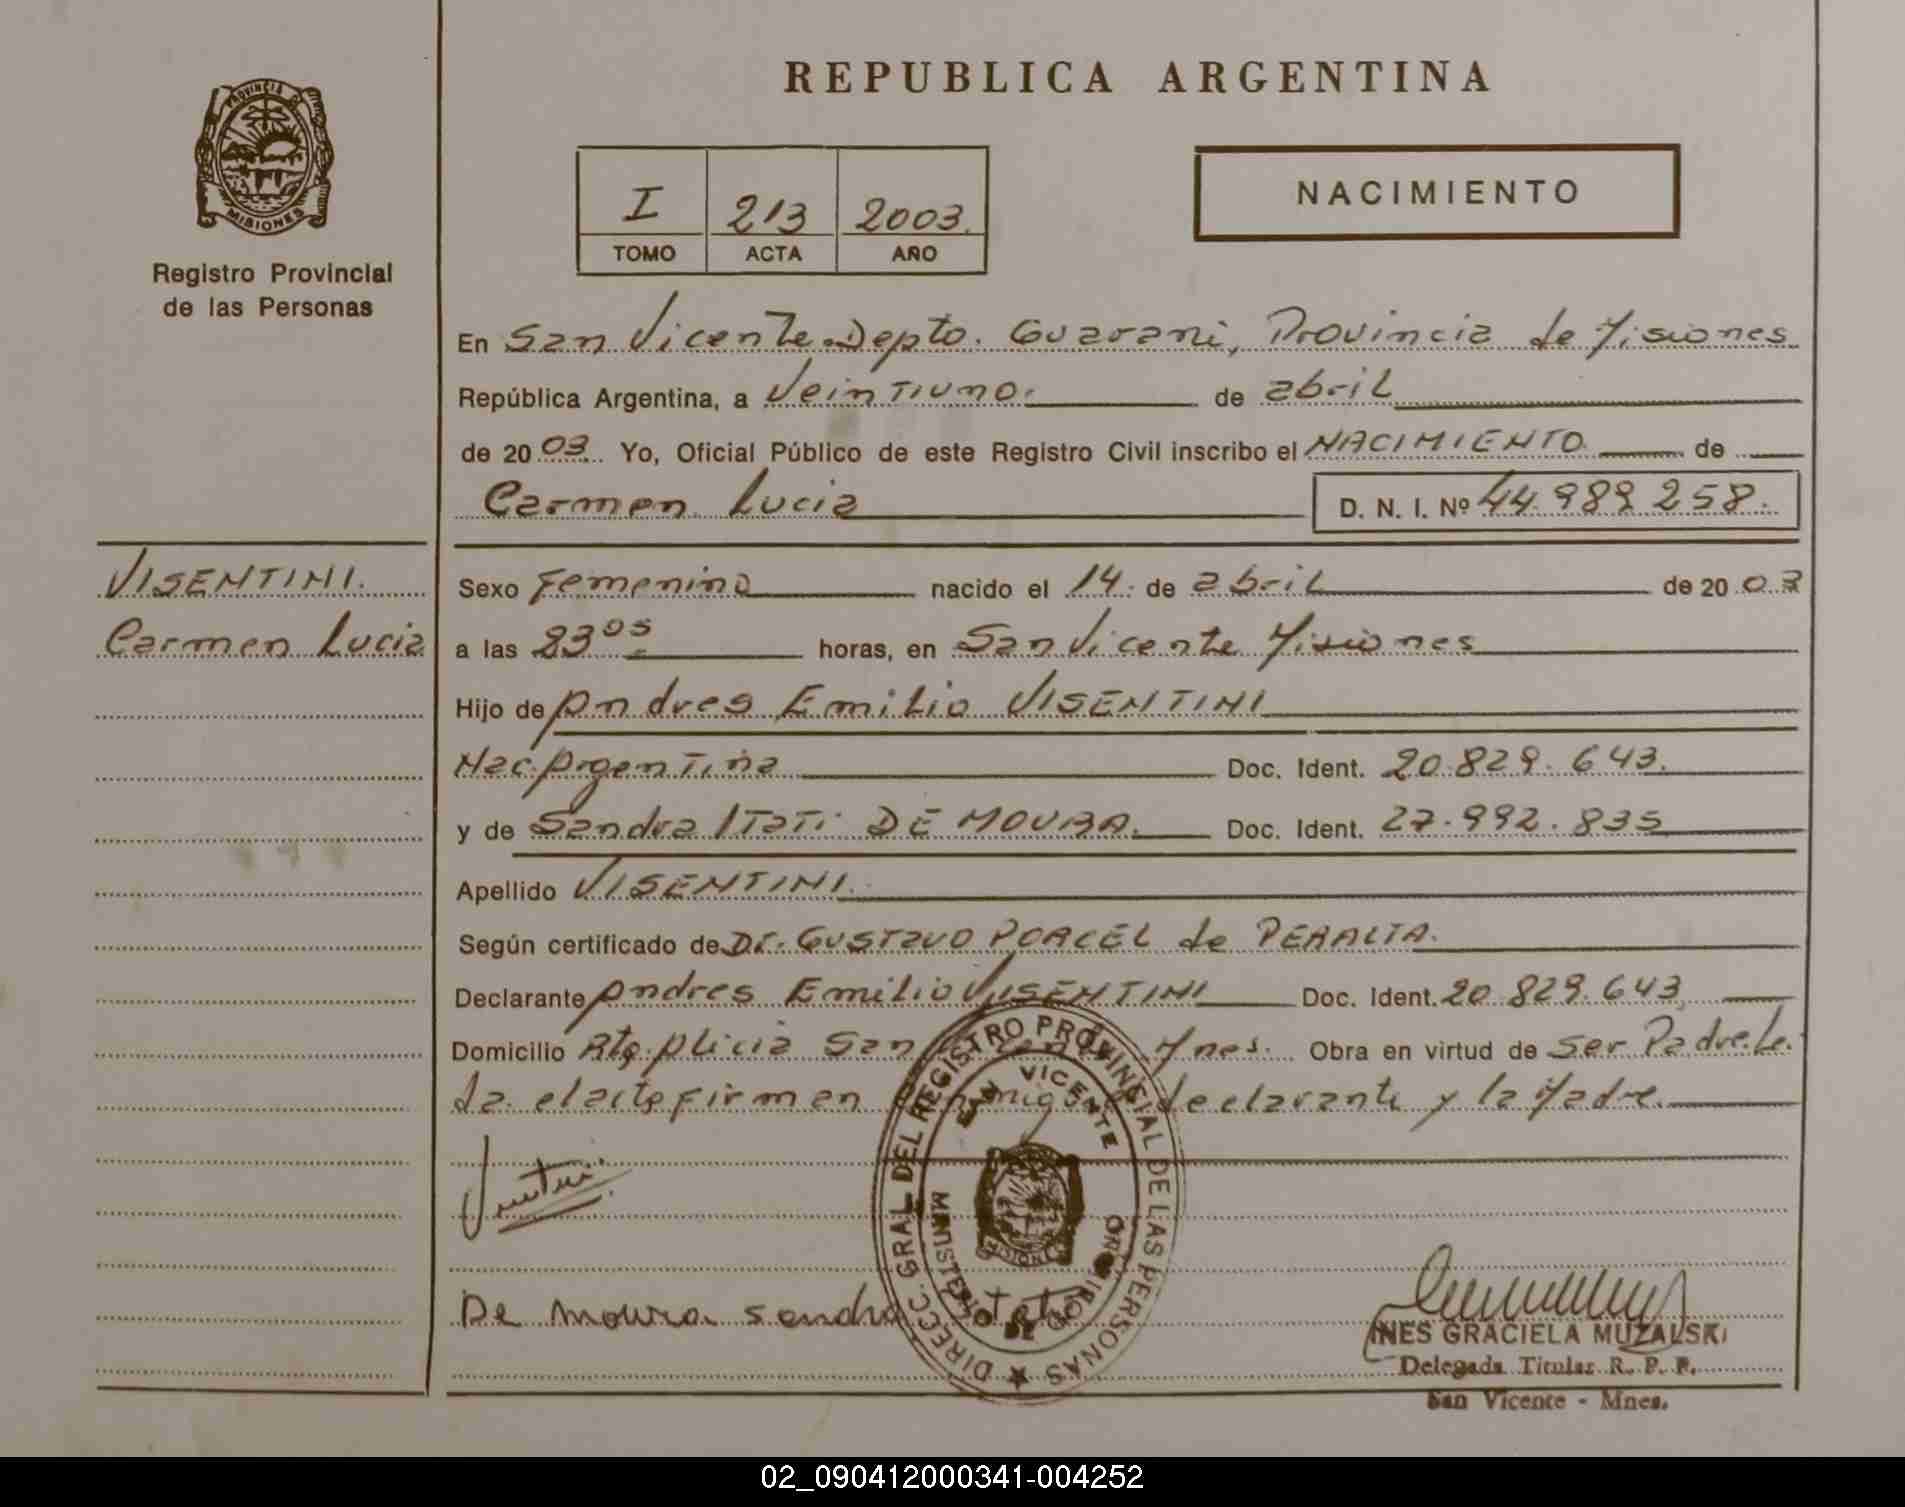 REPUBLICA ARGENTINA
PROVINCIA DE
MISIONES
Registro Provincial
de las Personas
I 213 2003.
TOMO ACTA AÑO
NACIMIENTO
En San Vicente Depto. Guarani, Provincia de Misiones
República Argentina, a Veintiuno. de abril
de 2003. Yo, Oficial Público de este Registro Civil inscribo el NACIMIENTO de
Carmen Lucia D. N. I. Nº 44.989.258.
VISENTINI.
Carmen Lucia
Sexo Femenino nacido el 14. de abril de 2003
a las 23 05 horas, en San Vicente Misiones
Hijo de Andres Emilio VISENTINI
Nac. Argentina Doc. Ident. 20.829.643.
y de Sandra Itati DE MOURA. Doc. Ident. 27.992.835
Apellido VISENTINI.
Según certificado de Dr. GUSTAVO PORCEL de PERALTA.
Declarante Andres Emilio VISENTINI Doc. Ident. 20.829.643
Domicilio Rto. Alicia San Mnes. Obra en virtud de ser Padre. Le.
da el acta firman declarante y la Madre.
De Moura Sandra Itati
DIRECC. GRAL. DEL REGISTRO PROVINCIAL DE LAS PERSONAS
SAN VICENTE
MINISTERIO DE GOBIERNO
INES GRACIELA MUZALSKI
Delegada Titular R. P. P.
San Vicente - Mnes.
02_090412000341-004252